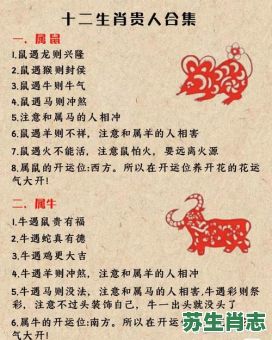 十二生肖贵人合集
一、属鼠
1.鼠遇龙则兴隆
2.鼠遇猴则封侯
3.鼠遇牛则牛气
4.鼠遇马则冲煞
5.注意和属马的人相冲
6.鼠遇羊则不祥，注意和属羊的人相害
7.鼠遇火不能活，注意鼠怕火，要远离火源
8.属鼠的开运位:西方。所以在开运位养开花的花运
气大开!
二、属牛
1.牛遇鼠贵有福
2.牛遇蛇真有德
3.牛遇鸡更大吉
4.牛遇羊则冲煞，注意和属羊的人相冲
5.牛遇马则没法，注意和属马的人相害，牛遇彩则祭
彩，注意不过头装饰自己，牛一出头就没头了
6.属牛的开运位:南方。所以在开运位
气大开!
苏生肖志